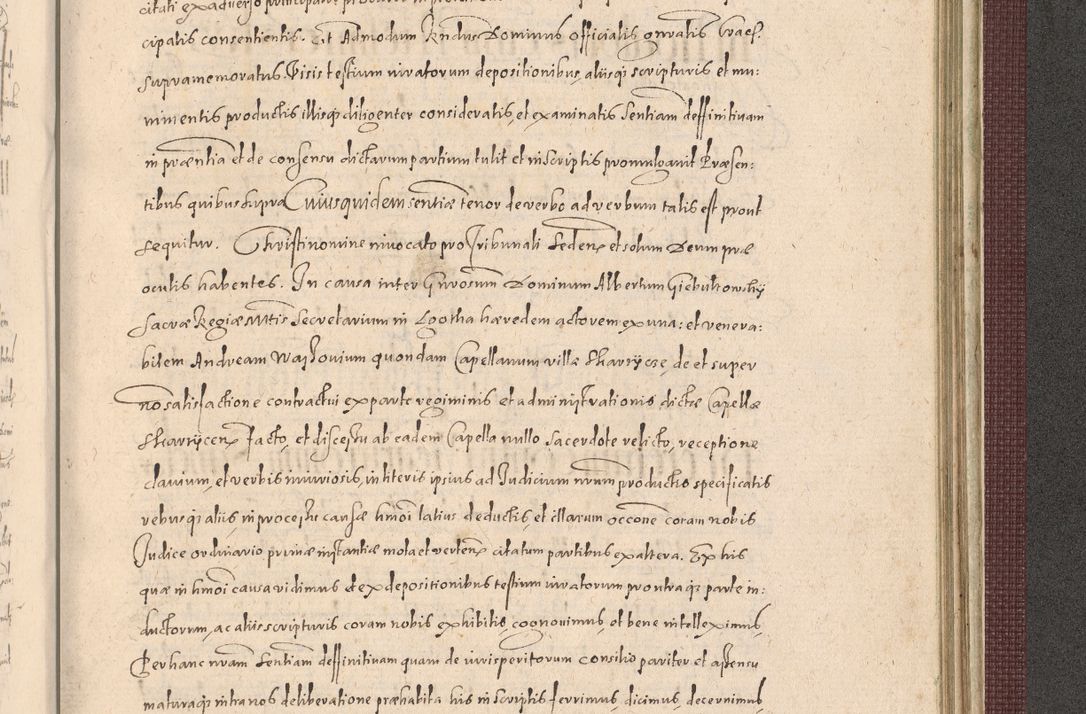 citati ex adverso principalis
cipalis consentientis. Et Admodum Rndus Dominus officialis gnralis Crac:
supramemoratus Visis testium iuratorum depositionibus, aliisq; scripturis et mu:
nimentis productis illisq; diligenter consideratis, et examinatis Sentiam deffinitivam
in praentia et de consensu dictarum partium tulit et in scriptis promulgavit Praesen:
tibus quibus supra Cuiusquidem sentiae tenor de verbo ad verbum talis est prout
sequitur. Christi nomine invocato pro Tribunali Seden et solum Deum prae
oculis habentes. In causa inter Gnrosum Dominum Albertum Giebultowsky
Sacrae Regiae Mttis Secretarium in Lgotha haeredem actorem ex una: et venera:
bilem Andream quondam Capellanum villae Skarrycze, de et super
non satisfactione contractui ex parte regiminis et administrationis dictae Capellae
Skarrÿcen facto, et discessu ab eadem Capella nullo Sacerdote relicto, receptione
clavium, et verbis iniuriosis, in literis ipsius ad Iudicium nrum productis specificatis
rebusq; aliis in processu causae hmoi latius deductis, et illarum occone coram nobis
Iudice ordinario primae instantiae mota et verten citatum partibus ex altera. Ex his
quae in hmoi causa vidimus et ex depositionibus testium iuratorum pro utraq; parte in:
ductorum, ac aliis scripturis coram nobis exhibitis, cognovimus, et bene intelleximus,
Per hanc nram Sentiam deffinitivam quam de iurisperitorum consilio pariter et assensu
maturaq; intra nos deliberatione praehabita his in scriptis ferrimus, dicimus, decernimus,